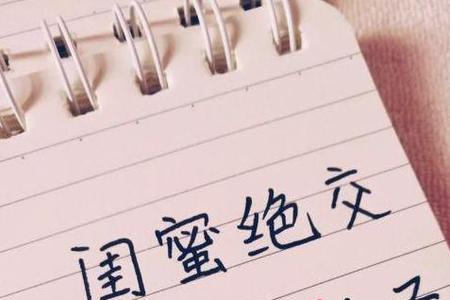 闺蜜绝交